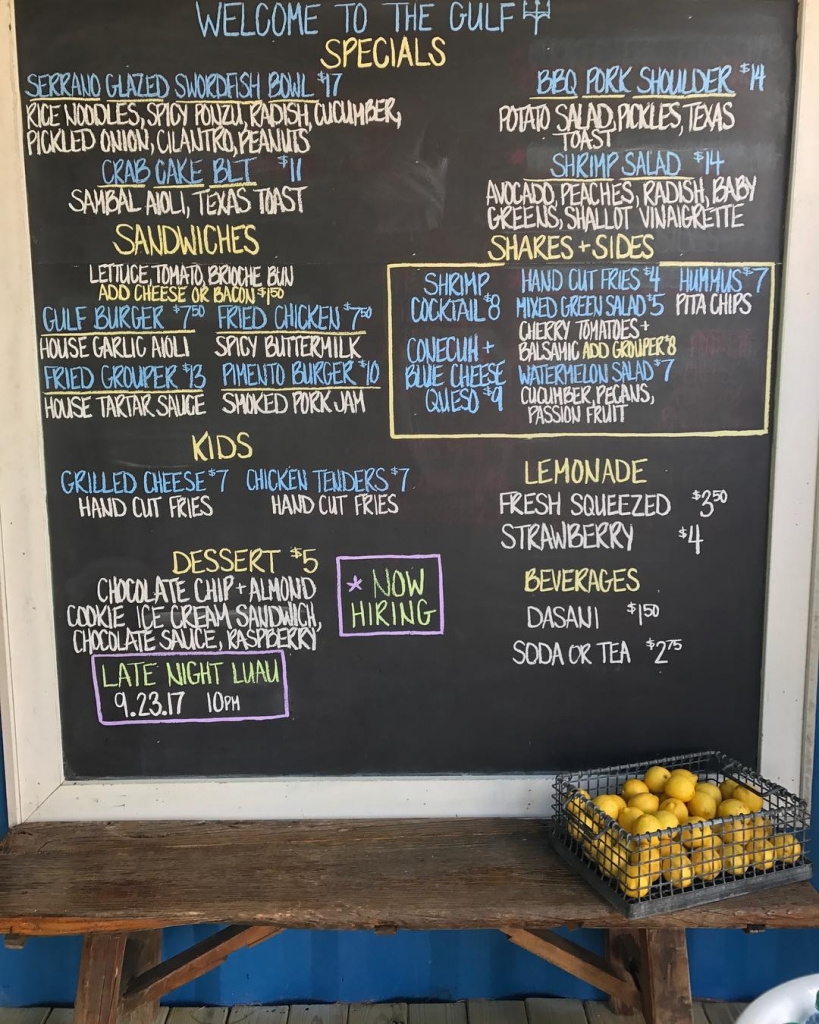 WELCOME TO THE GULF
SPECIALS
SERRANO GLAZED SWORDFISH BOWL $17
RICE NOODLES, SPICY PONZU, RADISH, CUCUMBER,
PICKLED ONION, CILANTRO, PEANUTS
CRAB CAKE BLT $11
SAMBAL AIOLI, TEXAS TOAST
BBQ PORK SHOULDER $14
POTATO SALAD, PICKLES, TEXAS
TOAST
SHRIMP SALAD $14
AVOCADO, PEACHES, RADISH, BABY
GREENS, SHALLOT VINAIGRETTE
SANDWICHES
LETTUCE, TOMATO, BRIOCHE BUN
ADD CHEESE OR BACON $1.50
GULF BURGER $7.50 FRIED CHICKEN $7.50
HOUSE GARLIC AIOLI SPICY BUTTERMILK
FRIED GROUPER $13 PIMENTO BURGER $10
HOUSE TARTAR SAUCE SMOKED PORK JAM
SHARES + SIDES
SHRIMP
COCKTAIL $8
CONECUH +
BLUE CHEESE
QUESO $9
HAND CUT FRIES $4
MIXED GREEN SALAD $5
CHERRY TOMATOES +
BALSAMIC ADD GROUPER $8
WATERMELON SALAD $7
CUCUMBER, PECANS,
PASSION FRUIT
HUMMUS $7
PITA CHIPS
KIDS
GRILLED CHEESE $7 CHICKEN TENDERS $7
HAND CUT FRIES HAND CUT FRIES
LEMONADE
FRESH SQUEEZED $3.50
STRAWBERRY $4
DESSERT $5
CHOCOLATE CHIP + ALMOND
COOKIE ICE CREAM SANDWICH,
CHOCOLATE SAUCE, RASPBERRY
* NOW
HIRING
BEVERAGES
DASANI $1.50
SODA OR TEA $2.75
LATE NIGHT LUAU
9.23.17 10PM